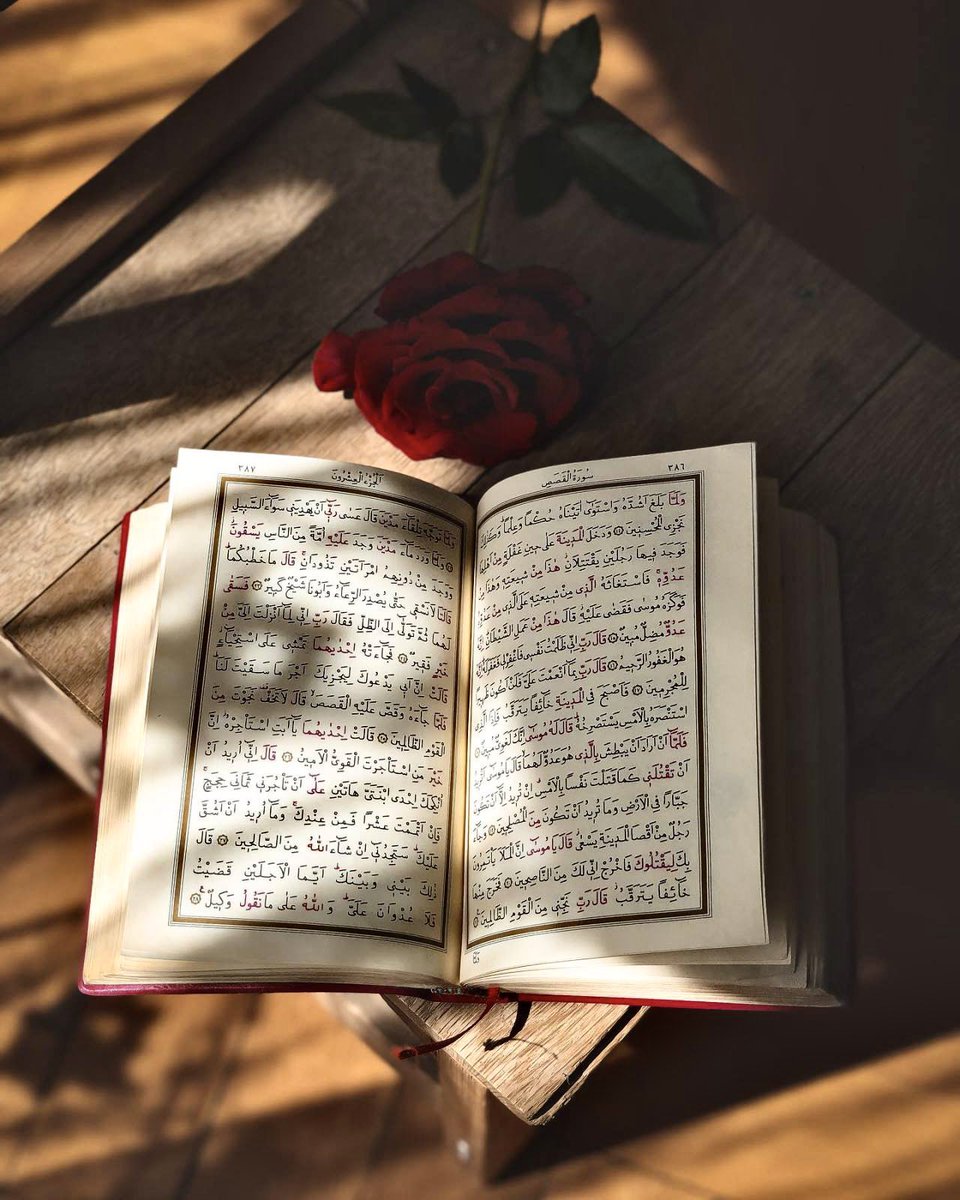 سُورَةُ الْقَصَصِ ٣٨٦
وَلَمَّا بَلَغَ اَشُدَّهُ وَاسْتَوٰٓى اٰتَيْنَاهُ حُكْمًا وَعِلْمًا وَكَذٰلِكَ
نَجْزِي الْمُحْسِنِينَ ١٤ وَدَخَلَ الْمَدِينَةَ عَلٰى حِينِ غَفْلَةٍ مِنْ اَهْلِهَا
فَوَجَدَ فِيهَا رَجُلَيْنِ يَقْتَتِلَانِ هٰذَا مِنْ شِيعَتِهِ وَهٰذَا مِنْ
عَدُوِّهِ فَاسْتَغَاثَهُ الَّذِي مِنْ شِيعَتِهِ عَلَى الَّذِي مِنْ عَدُوِّهِ
فَوَكَزَهُ مُوسٰى فَقَضٰى عَلَيْهِ قَالَ هٰذَا مِنْ عَمَلِ الشَّيْطَانِ اِنَّهُ
عَدُوٌّ مُضِلٌّ مُبِينٌ ١٥ قَالَ رَبِّ اِنِّي ظَلَمْتُ نَفْسِي فَاغْفِرْ لِي فَغَفَرَ لَهُ اِنَّهُ
هُوَ الْغَفُورُ الرَّحِيمُ ١٦ قَالَ رَبِّ بِمَٓا اَنْعَمْتَ عَلَيَّ فَلَنْ اَكُونَ ظَهِيرًا
لِلْمُجْرِمِينَ ١٧ فَاَصْبَحَ فِي الْمَدِينَةِ خَٓائِفًا يَتَرَقَّبُ فَاِذَا الَّذِي
اسْتَنْصَرَهُ بِالْاَمْسِ يَسْتَصْرِخُهُ قَالَ لَهُ مُوسٰٓى اِنَّكَ لَغَوِيٌّ مُبِينٌ ١٨
فَلَمَّٓا اَنْ اَرَادَ اَنْ يَبْطِشَ بِالَّذِي هُوَ عَدُوٌّ لَهُمَا قَالَ يَا مُوسٰٓى اَتُرِيدُ
اَنْ تَقْتُلَنِي كَمَا قَتَلْتَ نَفْسًا بِالْاَمْسِ اِنْ تُرِيدُ اِلَّٓا اَنْ تَكُونَ
جَبَّارًا فِي الْاَرْضِ وَمَا تُرِيدُ اَنْ تَكُونَ مِنَ الْمُصْلِحِينَ ١٩ وَجَٓاءَ
رَجُلٌ مِنْ اَقْصَا الْمَدِينَةِ يَسْعٰى قَالَ يَا مُوسٰٓى اِنَّ الْمَلَاَ يَأْتَمِرُونَ
بِكَ لِيَقْتُلُوكَ فَاخْرُجْ اِنِّي لَكَ مِنَ النَّاصِحِينَ ٢٠ فَخَرَجَ مِنْهَا
خَٓائِفًا يَتَرَقَّبُ قَالَ رَبِّ نَجِّنِي مِنَ الْقَوْمِ الظَّالِمِينَ ٢١
اَلْجُزْءُ الْعِشْرُونَ ٣٨٧
وَلَمَّا تَوَجَّهَ تِلْقَٓاءَ مَدْيَنَ قَالَ عَسٰى رَبِّٓي اَنْ يَهْدِيَنِي سَوَٓاءَ السَّبِيلِ
٢٢ وَلَمَّا وَرَدَ مَٓاءَ مَدْيَنَ وَجَدَ عَلَيْهِ اُمَّةً مِنَ النَّاسِ يَسْقُونَ
وَوَجَدَ مِنْ دُونِهِمُ امْرَاَتَيْنِ تَذُودَانِ قَالَ مَا خَطْبُكُمَا
قَالَتَا لَا نَسْقِي حَتّٰى يُصْدِرَ الرِّعَٓاءُ وَاَبُونَا شَيْخٌ كَبِيرٌ ٢٣ فَسَقٰى
لَهُمَا ثُمَّ تَوَلّٰٓى اِلَى الظِّلِّ فَقَالَ رَبِّ اِنِّي لِمَٓا اَنْزَلْتَ اِلَيَّ مِنْ
خَيْرٍ فَقِيرٌ ٢٤ فَجَٓاءَتْهُ اِحْدٰيهُمَا تَمْشِي عَلَى اسْتِحْيَٓاءٍ
قَالَتْ اِنَّ اَبِي يَدْعُوكَ لِيَجْزِيَكَ اَجْرَ مَا سَقَيْتَ لَنَا
فَلَمَّا جَٓاءَهُ وَقَصَّ عَلَيْهِ الْقَصَصَ قَالَ لَا تَخَفْ نَجَوْتَ مِنَ
الْقَوْمِ الظَّالِمِينَ ٢٥ قَالَتْ اِحْدٰيهُمَا يَٓا اَبَتِ اسْتَأْجِرْهُ اِنَّ
خَيْرَ مَنِ اسْتَأْجَرْتَ الْقَوِيُّ الْاَمِينُ ٢٦ قَالَ اِنِّٓي اُرِيدُ اَنْ
اُنْكِحَكَ اِحْدَى ابْنَتَيَّ هَاتَيْنِ عَلٰٓى اَنْ تَأْجُرَنِي ثَمَانِيَ حِجَجٍ
فَاِنْ اَتْمَمْتَ عَشْرًا فَمِنْ عِنْدِكَ وَمَٓا اُرِيدُ اَنْ اَشُقَّ
عَلَيْكَ سَتَجِدُنِٓي اِنْ شَٓاءَ اللّٰهُ مِنَ الصَّالِحِينَ ٢٧ قَالَ
ذٰلِكَ بَيْنِي وَبَيْنَكَ اَيَّمَا الْاَجَلَيْنِ قَضَيْتُ
فَلَا عُدْوَانَ عَلَيَّ وَاللّٰهُ عَلٰى مَا نَقُولُ وَكِيلٌ ٢٨